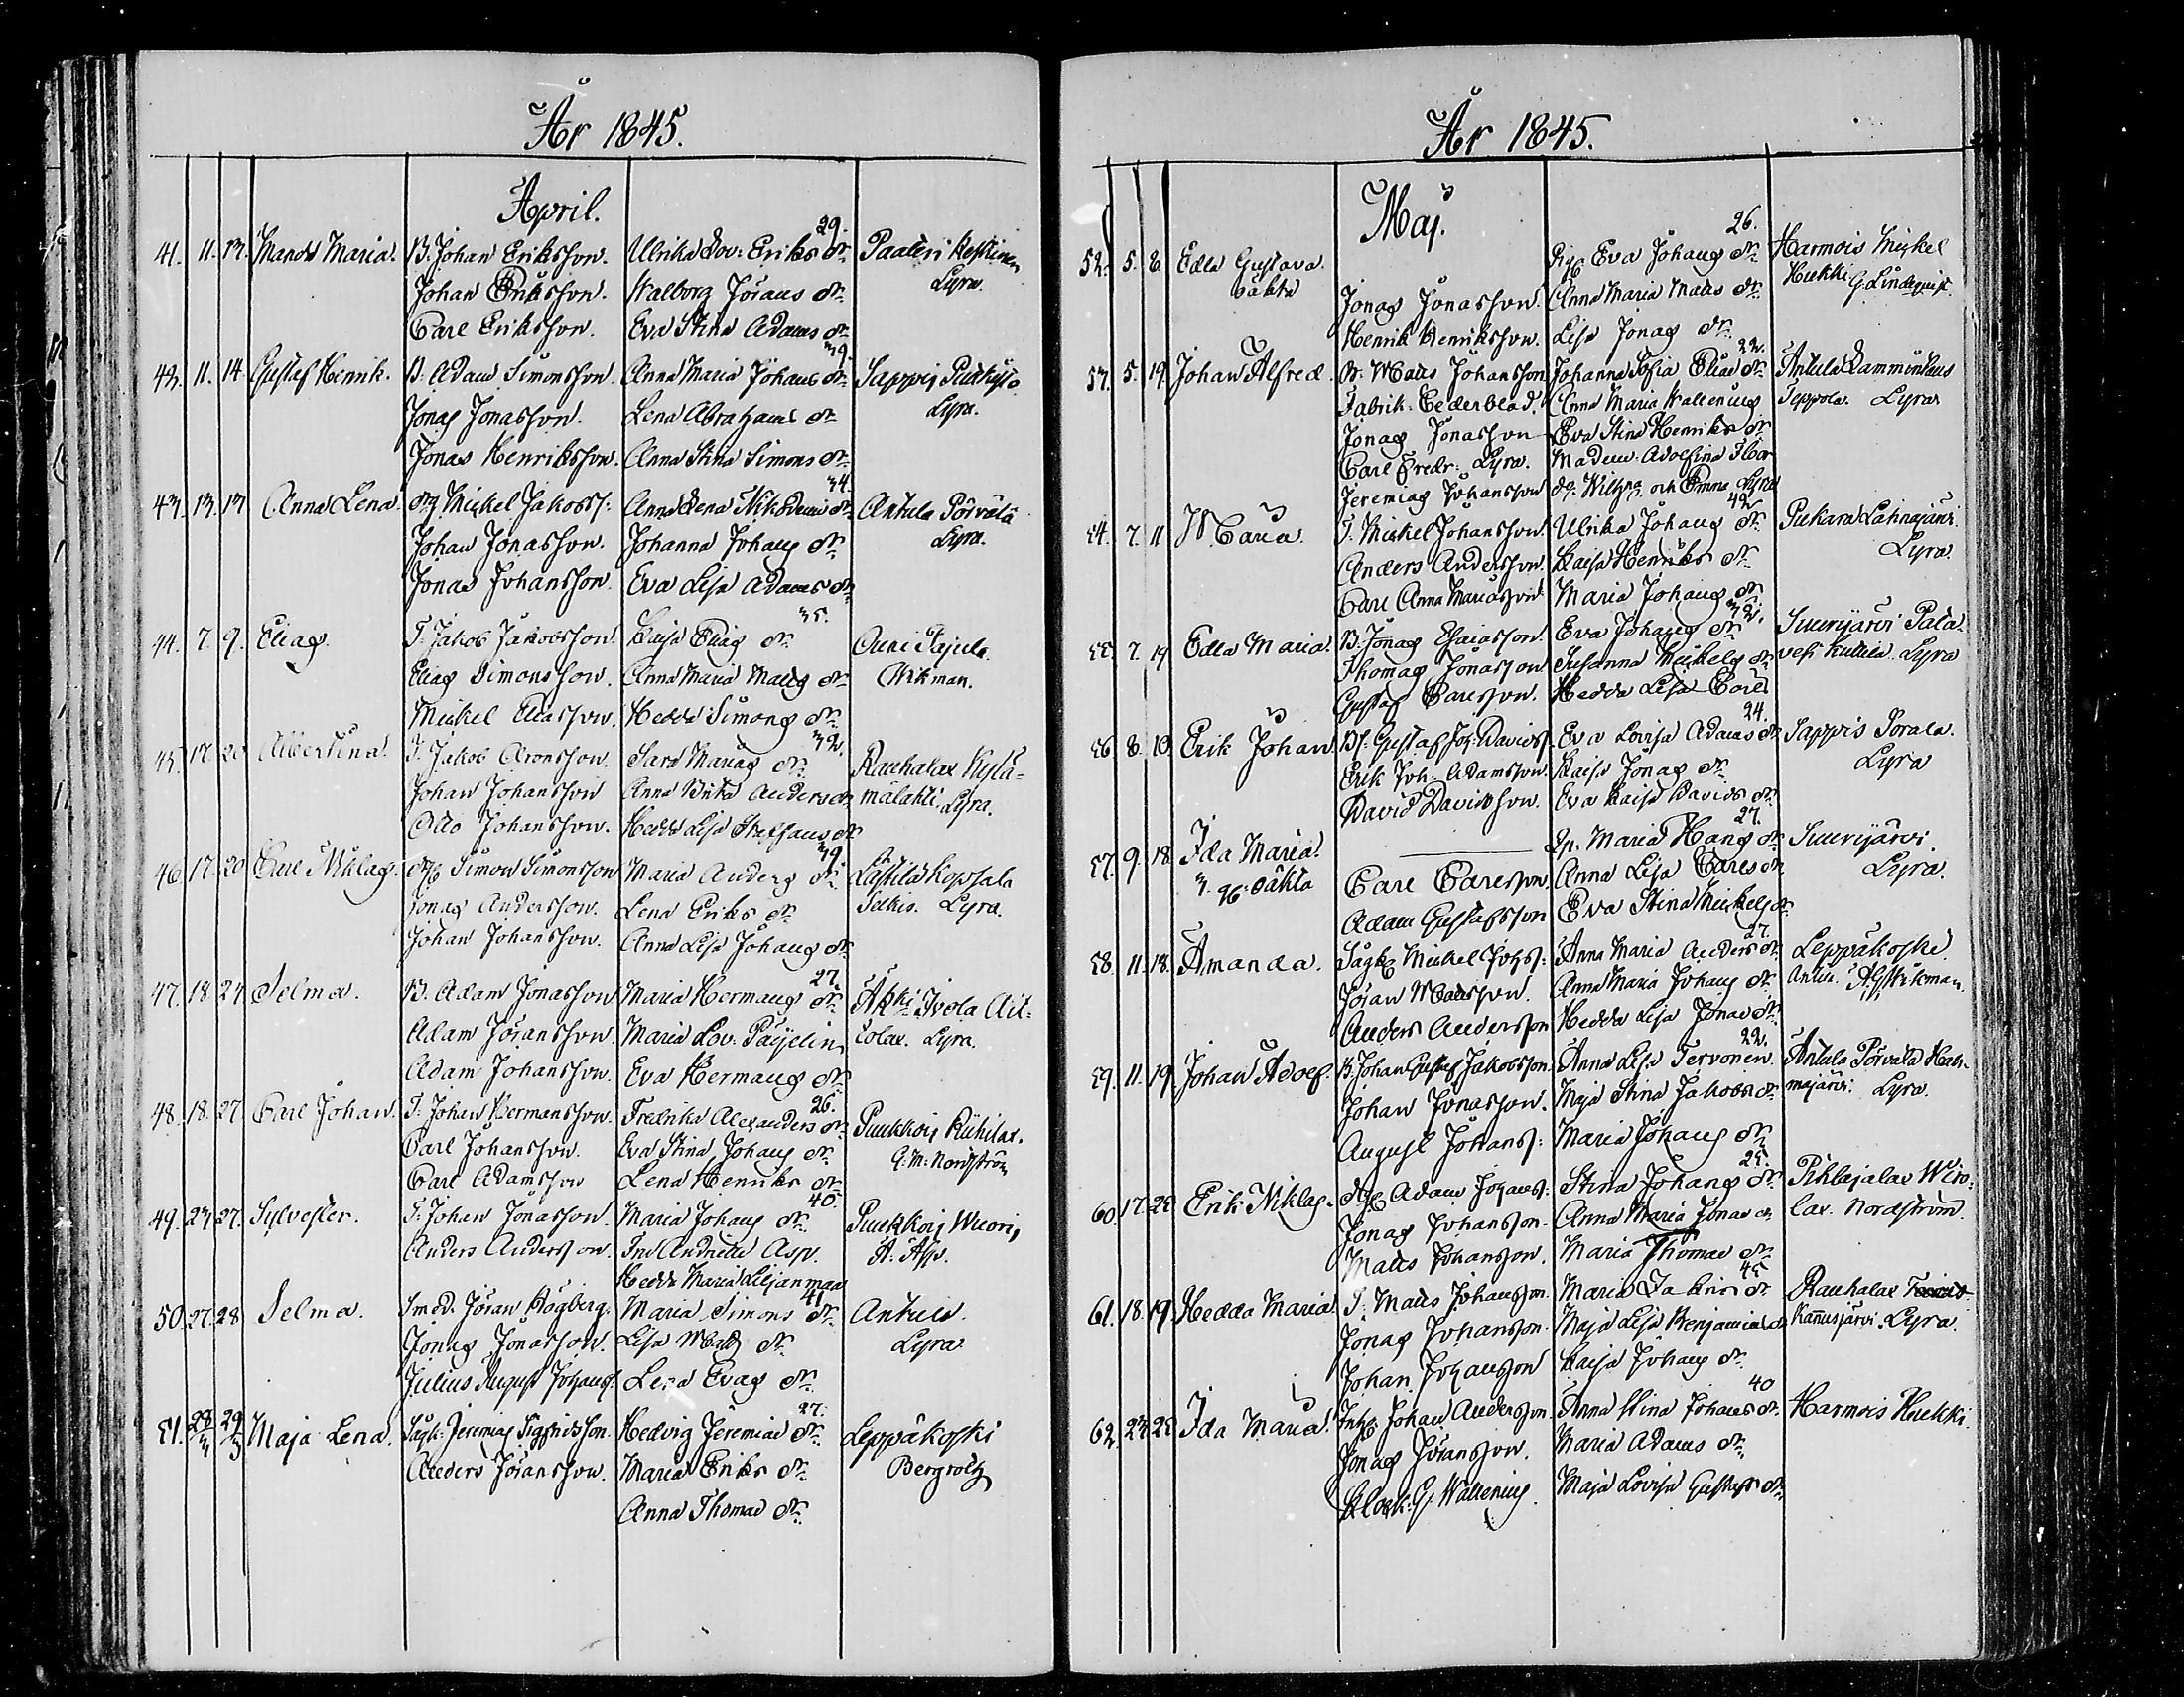 År 1845.
April.
41. 11. 13. Manda Maria. B. Johan Eriksson. Ulrika Lov: Eriks dr. 29. Paateri Keskinen
Johan Eriksson. Walborg Johans dr. Lyra.
Carl Eriksson. Eva Stina Adams dr.
42. 11. 14 Gustaf Henrik. B. Adam Simonsson. Anna Maria Johans dr. 39. Sappis
Jonas Jonasson. Lena Abrahams dr Lyra.
Jonas Henriksson. Anna Stina Simons dr.
43. 13. 13 Anna Lena. Mickel Jakobss: Anna Lena Nikodemi dr. 34. Antula Pörvälä
Johan Jonasson. Johanna Johans dr. Lyra.
Jonas Johansson. Eva Lisa Adams dr
44. 7. 9. Elias. T. Jakob Jakobsson. Caisa Elias dr. 35. Ouni
Elias Simonsson. Anna Maria Matts dr. Wikman.
Mickel Eliasson. Hedda Simons dr.
45. 17. 20 Albertina. T. Jakob Aronsson. Sara Marias dr. 32. Rauhalax Kylä-
Johan Johansson Anna Brita Anders dr mälahti Lyra.
Otto Johansson. Hedda Lisa Staffans dr
46. 17. 20 Carl Niklas. Simon Simonsson Maria Anders dr. 39. Lastila Kopsala
Jonas Andersson. Lena Eriks dr. Selkis. Lyra.
Johan Johansson. Anna Lisa Johans dr
47. 18 24 Selma. B. Adam Jonasson Maria Hermans dr. 27. Äkki Ivola Ait-
Adam Johansson. Maria Lov. Päijelin colax. Lyra.
Adam Johansson. Eva Hermans dr.
48. 18. 27. Carl Johan. T. Johan Hermansson. Fredrika Alexanders dr. 26. Puukkois Riihilax.
Carl Johansson. Eva Stina Johans dr. G. M. Nordström
Carl Adamsson Lena Henriks dr.
49. 23 27. Sylvester. T. Johan Jonasson. Maria Johans dr. 40. Puukkois Wuoris
Anders Andersson. Andrietta Asp. A. Asp.
Hedda Maria Liljanman
50. 27. 28 Selma. Smed. Johan Högberg. Maria Simons dr. 41 Antuis.
Jonas Jonasson. Lisa Matts dr. Lyra
Julius August Johanss. Lena Evas dr.
51. 28/3 29/3 Maja Lena. Sågk. Jeremias Sigfridsson. Hedvig Jeremias dr. 27. Leppäkoski
Anders Johansson. Maria Eriks dr. Bergroth
Anna Thomas dr.
År 1845.
Maj.
52. 5. 6. Edla Gustava. Pig Eva Johans dr. 26. Harmois Mickel
oäkta Jonas Jonasson. Anna Maria Matts dr. Heikki G. Lindequist.
Henrik Henriksson. Lisa Jonas dr.
53. 5. 19. Johan Alfred. B. Matts Johansson Johanna Sofia Elias dr. 22. Antula Lamminhaus
Fabrik. Cederblad. Anna Maria Wallenius Seppola. Lyra
Jonas Jonasson Eva Stina Henriks dr
Carl Fredr. Lyra. Madem: Adolfina Thor
Jeremias Johansson do. Wilhna. och Emma Lyra
54. 7. 11 Maria. T. Mickel Johansson. Ulrika Johans dr. 42 Piekara Lahnajärvi.
Anders Andersson. Caisa Henriks dr. Lyra.
Carl Anna Mariasson Maria Johans dr.
55. 7. 19 Edla Maria. B. Jonas Esaiasson. Eva Johans dr. 32. Suurijärvi Pala-
Thomas Jonasson Susanna Mickels dr vesi Kuttila. Lyra
Gustaf Carlsson. Hedda Lisa Carls
56. 8. 10. Erik Johan. Bs. Gustaf Joh: Davids. Eva Lovisa Adams dr. 24. Sappis Sorala.
Erik Joh: Adamsson. Caisa Jonas dr. Lyra
David Davidsson. Eva Caisa Davids dr.
57. 9. 18. Ida Maria. Maria Hans dr. 27. Suurijärvi.
oäkta Carl Carlsson. Anna Lisa Carls dr Lyra.
Adam Gustafsson Eva Stina Mickels dr.
58. 11. 18. Amanda. Sågk. Mickel Johss: Anna Maria Anders dr. 27. Leppäkoski
Johan Mattsson. Anna Maria Johans dr. Wikman.
Anders Andersson Hedda Lisa Jonas dr.
59. 11. 19. Johan Adolf. B. Johan Gustaf Jakobsson. Anna Lisa Tervonen. 22. Antula Pörvälä Hah-
Johan Jonasson. Maja Stina Jakobs dr majärvi. Lyra.
August Johanss: Maria Johans dr.
60. 17. 25. Erik Niklas. Adam Johanss: Stina Johans dr. 25. Pihlajalax Wiro-
Jonas Johansson. Anna Maria Jonas dr lax. Nordström.
Matts Johansson. Maria Thomas dr.
61. 18 19. Hedda Maria. T. Matts Johansson. Maria dr. 45 Rauhalax
Jonas Johansson. Maja Lisa Benjamins dr Kannusjärvi. Lyra.
Johan Johansson Caisa Johans dr.
62. 24 25 Ida Maria. Inh. Johan Andersson. Anna Stina Johans dr. 40 Harmois Heikki.
Jonas Johansson. Maria Adams dr.
Klock: G. Wallenius. Maja Lovisa Gustafs dr.